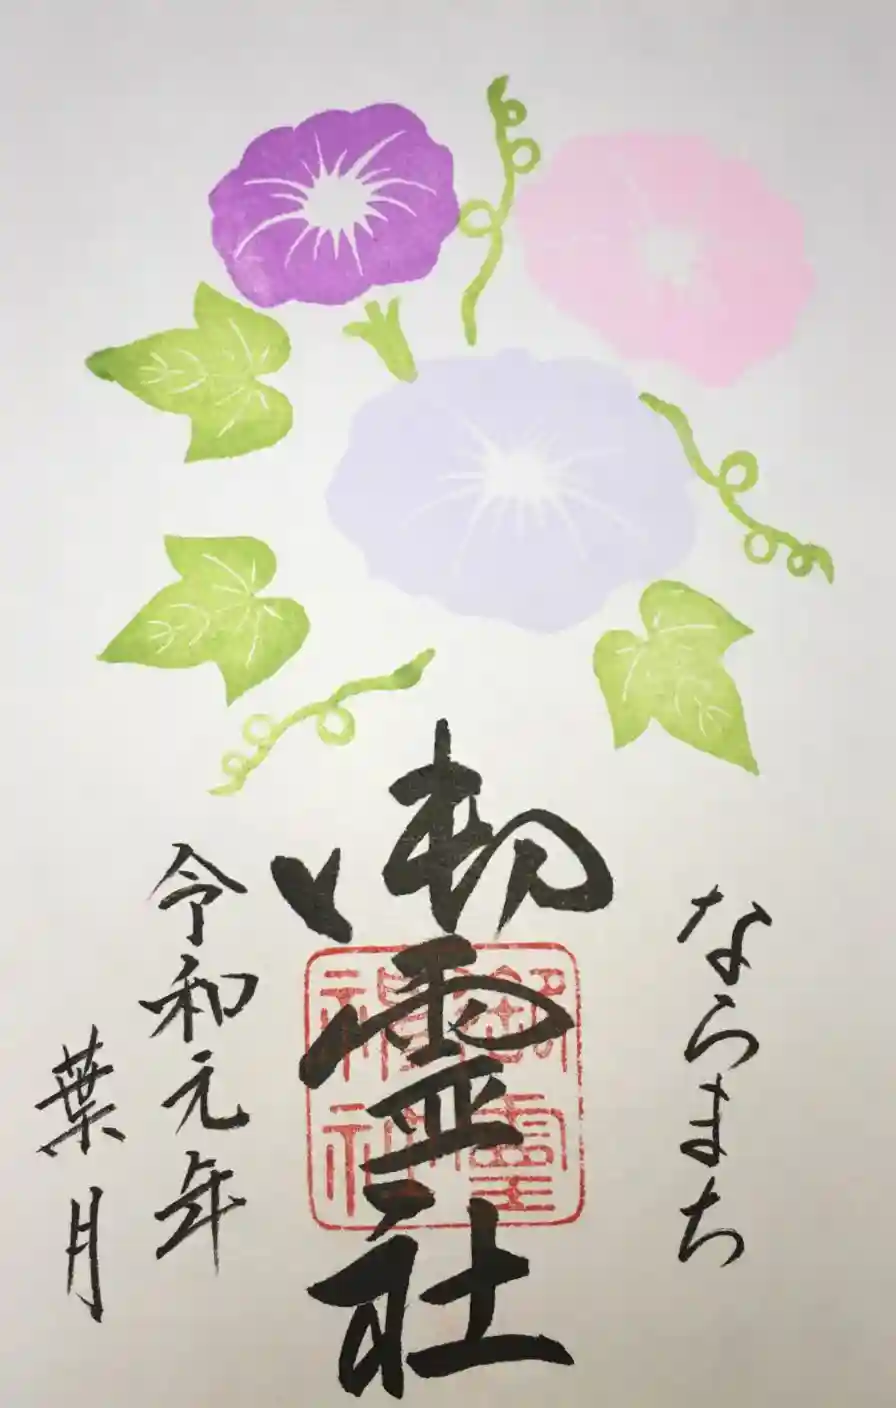 ならまち
御霊社
御霊神社
令和元年
葉月